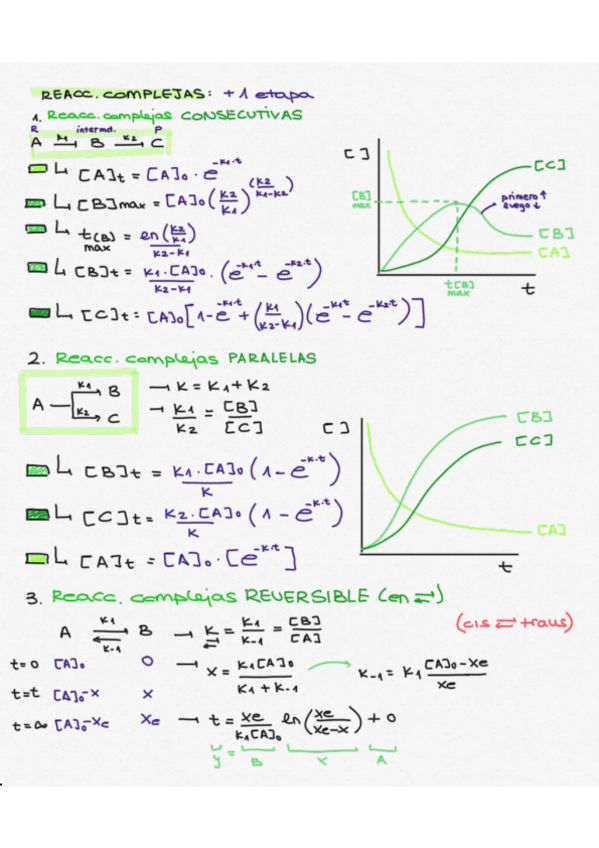 REACC. COMPLEJAS: + 1 etapa
1. Reacc. complejas CONSECUTIVAS
R intermd. P
A —k1→ B —k2→ C
[A]t = [A]₀ · e^(-k1·t)
[B]max = [A]₀ (k2/k1)^(k2/(k1-k2))
t[B]max = en(k2/k1) / (k2-k1)
[B]t = k1·[A]₀ / (k2-k1) · (e^(-k1t) - e^(-k2t))
[C]t = [A]₀ [1 - e^(-k1·t) + (k1/(k2-k1)) (e^(-k1t) - e^(-k2t))]
[ ]
[C]
[B] max
primero ↑
luego ↓
[B]
[A]
t[B] max
t
2. Reacc. complejas PARALELAS
A —k1→ B
—k2→ C
→ K = K1 + K2
→ K1/K2 = [B]/[C]
[B]t = K1·[A]₀/K (1 - e^(-k·t))
[C]t = K2·[A]₀/K (1 - e^(-k·t))
[A]t = [A]₀ · [e^(-k·t)]
[ ]
[B]
[C]
[A]
t
3. Reacc. complejas REVERSIBLE (en ⇄)
(cis ⇄ traus)
A k1 ⇄ k-1 B → K⇄ = K1/K-1 = [B]/[A]
t=0 [A]₀ 0 → x = K1[A]₀ / (K1 + K-1) → K-1 = K1 ([A]₀ - xe)/xe
t=t [A]₀-x x
t=∞ [A]₀-xe xe → t = xe/(k1[A]₀) en(xe/(xe-x)) + 0
y = B x A